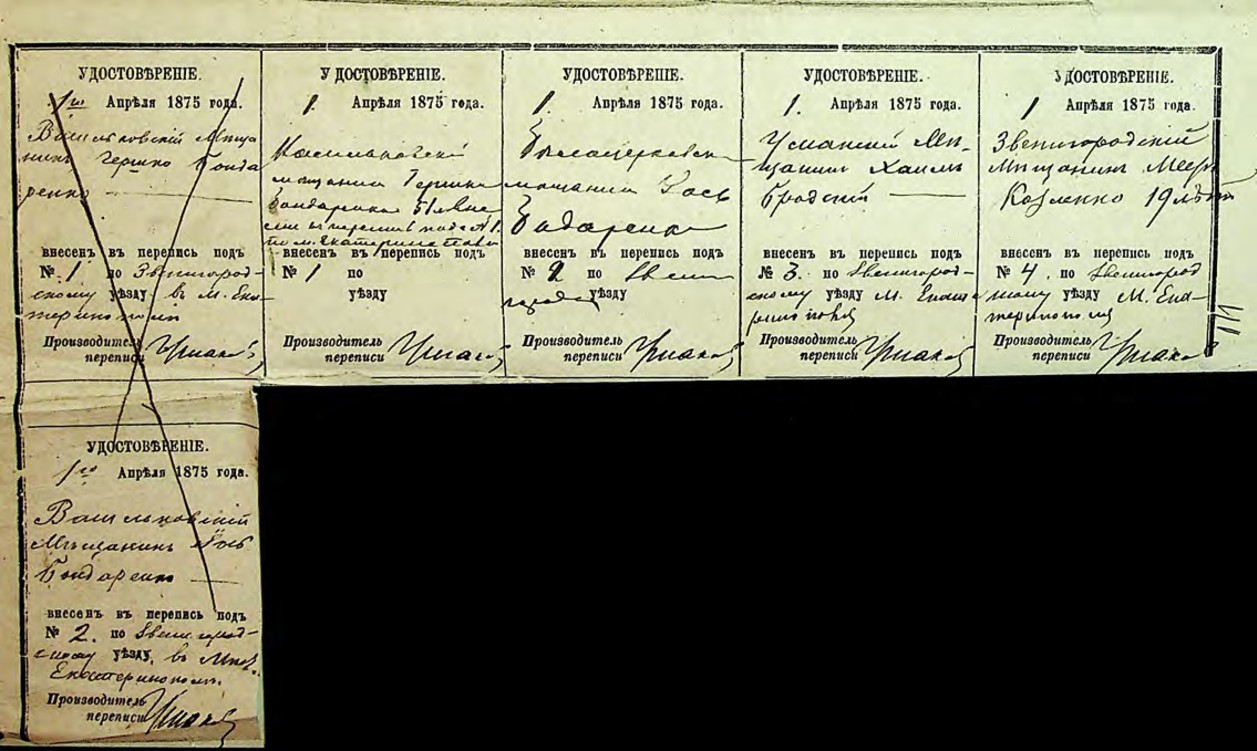 УДОСТОВѢРЕНІЕ.
1го Апрѣля 1875 года.
Васильковскій Мѣща
нинъ Гершко Бонда
ренко
внесенъ въ перепись подъ
№ 1 по Звенигород-
скому уѣзду въ м. Ека-
теринополѣ
Производитель
переписи
УДОСТОВѢРЕНІЕ.
1. Апрѣля 1875 года.
мѣщанинъ Гершко
Бондаренко
внесенъ въ перепись подъ
№ 1 по
уѣзду
Производитель
переписи
УДОСТОВѢРЕНІЕ.
1. Апрѣля 1875 года.
мѣщанинъ Іось
внесенъ въ перепись подъ
№ 2 по Звени
уѣзду
Производитель
переписи
УДОСТОВѢРЕНІЕ.
1. Апрѣля 1875 года.
Мѣ-
щанинъ Хаимъ
Бродскій
внесенъ въ перепись подъ
№ 3. по Звенигород-
скому уѣзду М. Екате
ринополь
Производитель
переписи
УДОСТОВѢРЕНІЕ.
1 Апрѣля 1875 года.
Звенигородскій
Мѣщанинъ Меер
Козленко 19 лѣтъ
внесенъ въ перепись подъ
№ 4. по Звенигород
скому уѣзду М. Ека-
теринополь
Производитель
переписи
УДОСТОВѢРЕНІЕ.
1го Апрѣля 1875 года.
Васильковскій
Мѣщанинъ Іось
Бондаренко
внесенъ въ перепись подъ
№ 2. по Звенигород-
скому уѣзду, въ Мѣст.
Екатеринополѣ.
Производитель
переписи